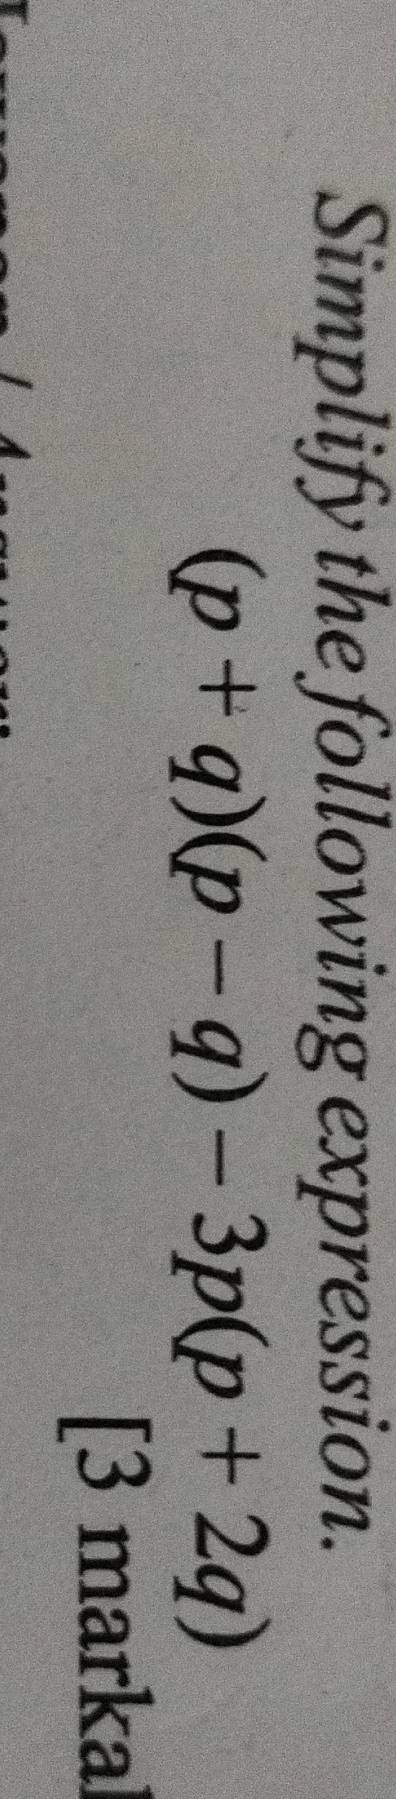 Simplify the following expression.
(p + q)(p − q) − 3p(p + 2q)
[3 marka